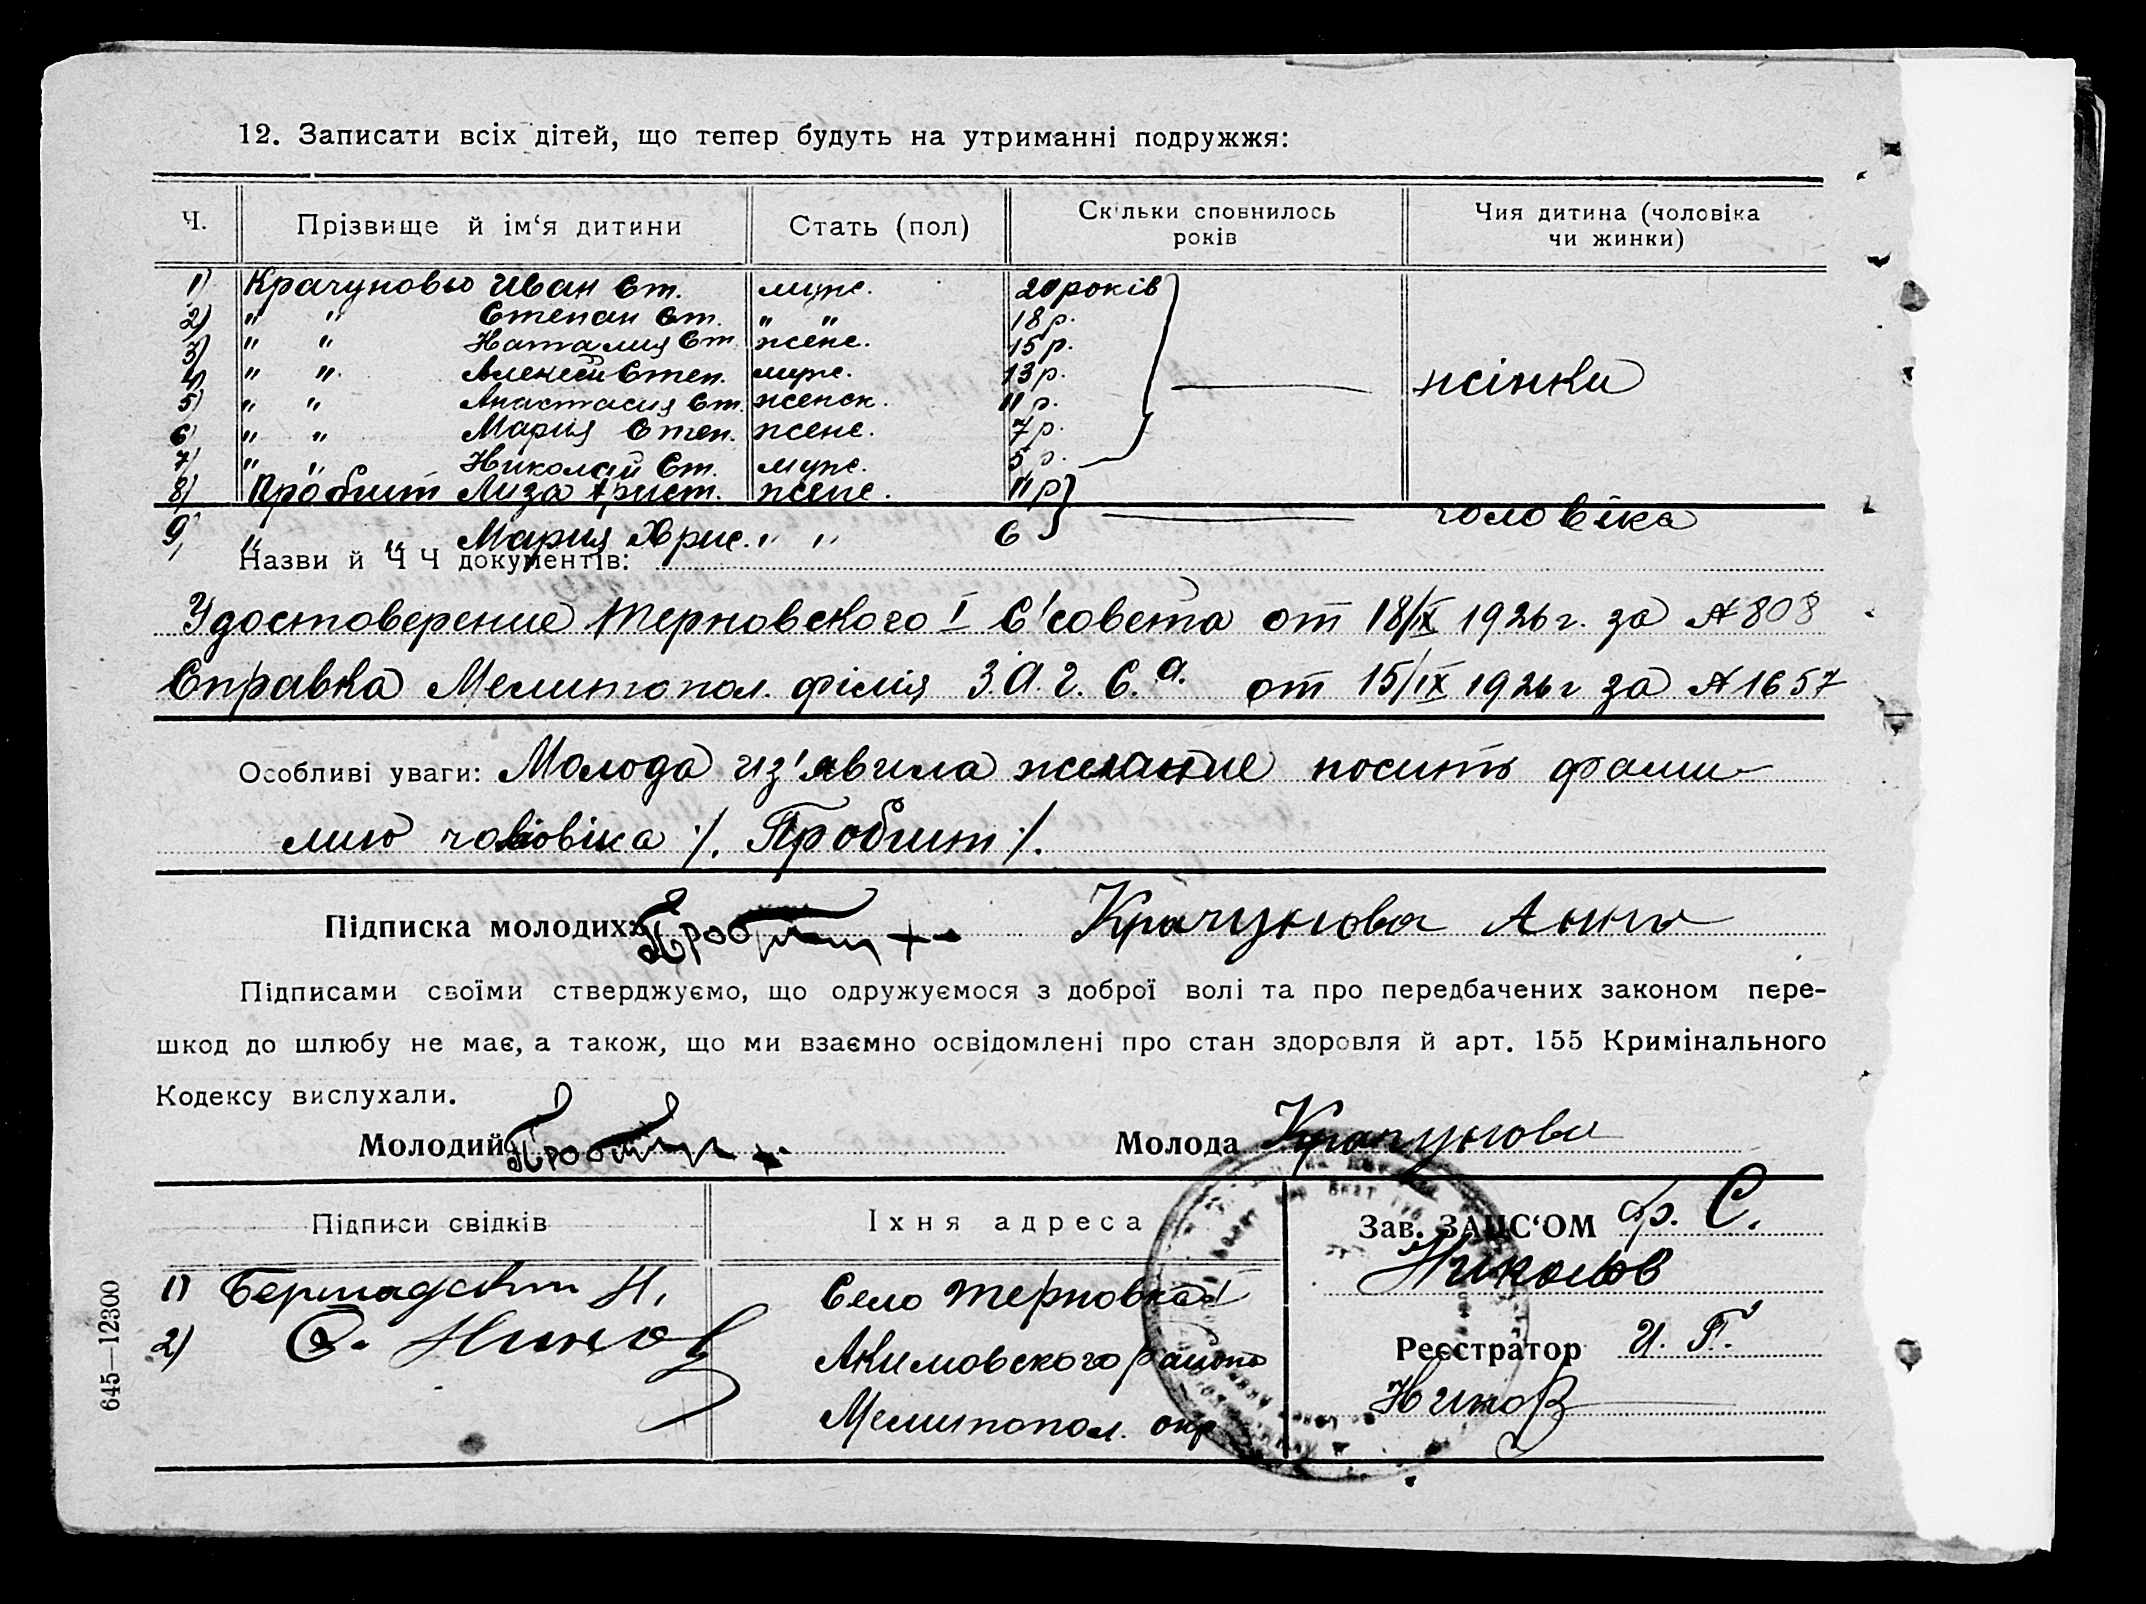 12. Записати всіх дітей, що тепер будуть на утриманні подружжя:
Ч. Прізвище й ім‘я дитини Стать (пол) Скільки сповнилось років Чия дитина (чоловіка чи жинки)
1) Крачуновы Иван Ст. мужс. 20 років
2) " " Степан Ст. " " 18 р.
3) " " Наталия Ст. женс. 15 р.
4) " " Алексей Степ. мужс. 13 р. жінки
5) " " Анастасия Ст. женск. 11 р.
6) " " Мария Степ. женс. 7 р.
7) " " Николай Ст. мужс. 5 р.
8) Пробгит Лиза Христ. женс. 11 р
9) " " Мария Хрис. " " 6 чоловіка
Назви й Ч Ч документів:
Удостоверение Терновского I С/совета от 18/IX 1926 г. за № 808
Справка Мелитопол. філія З.А.Г.С.а. от 15/IX 1926 г за № 1657
Особливі уваги: Молода из'явила желание носить фами
лию чоловіка ·/. Пробгит ·/.
Підписка молодих: Пробгит Крачунова Анна
Підписами своїми стверджуємо, що одружуємося з доброї волі та про передбачених законом пере-
шкод до шлюбу не має, а також, що ми взаємно освідомлені про стан здоровля й арт. 155 Кримінального
Кодексу вислухали.
Молодий Пробгит Молода Крачунова
Підписи свідків Їхня адреса Зав. ЗАПС‘ОМ С.
Николов
1) Н. Село Терновка I
2) С. Нинов Акимовского района
Реєстратор И. Г.
Нинов
Мелитопол. окр
645—12300